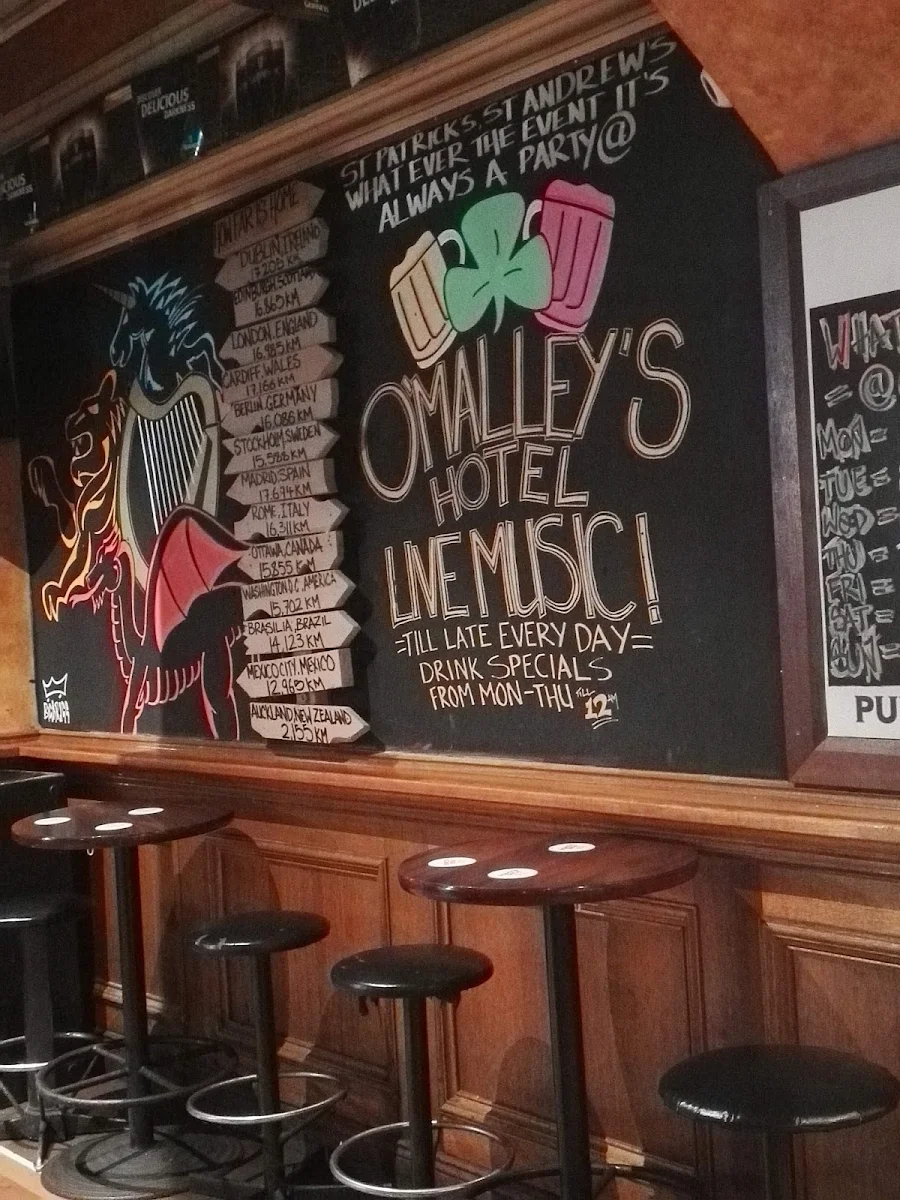 DISCOVER
DELICIOUS
DARKNESS
ST PATRICKS, ST ANDREW'S
WHAT EVER THE EVENT IT'S
ALWAYS A PARTY@
O'MALLEY'S
HOTEL
LIVE MUSIC!
=TILL LATE EVERY DAY=
DRINK SPECIALS
FROM MON-THU TILL
12AM
HOW FAR IS HOME
DUBLIN, IRELAND
17.205 KM
EDINBURGH, SCOTLAND
16.865 KM
LONDON, ENGLAND
16.985 KM
CARDIFF, WALES
17,166 KM
BERLIN, GERMANY
16,086 KM
STOCKHOLM, SWEDEN
15.588 KM
MADRID, SPAIN
17.674 KM
ROME, ITALY
16,311 KM
OTTAWA, CANADA
15855 KM
WASHINGTON D.C, AMERICA
15,702 KM
BRASILIA, BRAZIL
14,123 KM
MEXICO CITY, MEXICO
12,965 KM
AUCKLAND, NEW ZEALAND
2,155 KM
WHAT
= @
MON=
TUE=
WED=
THU=
FRI=
SAT=
SUN=
PU